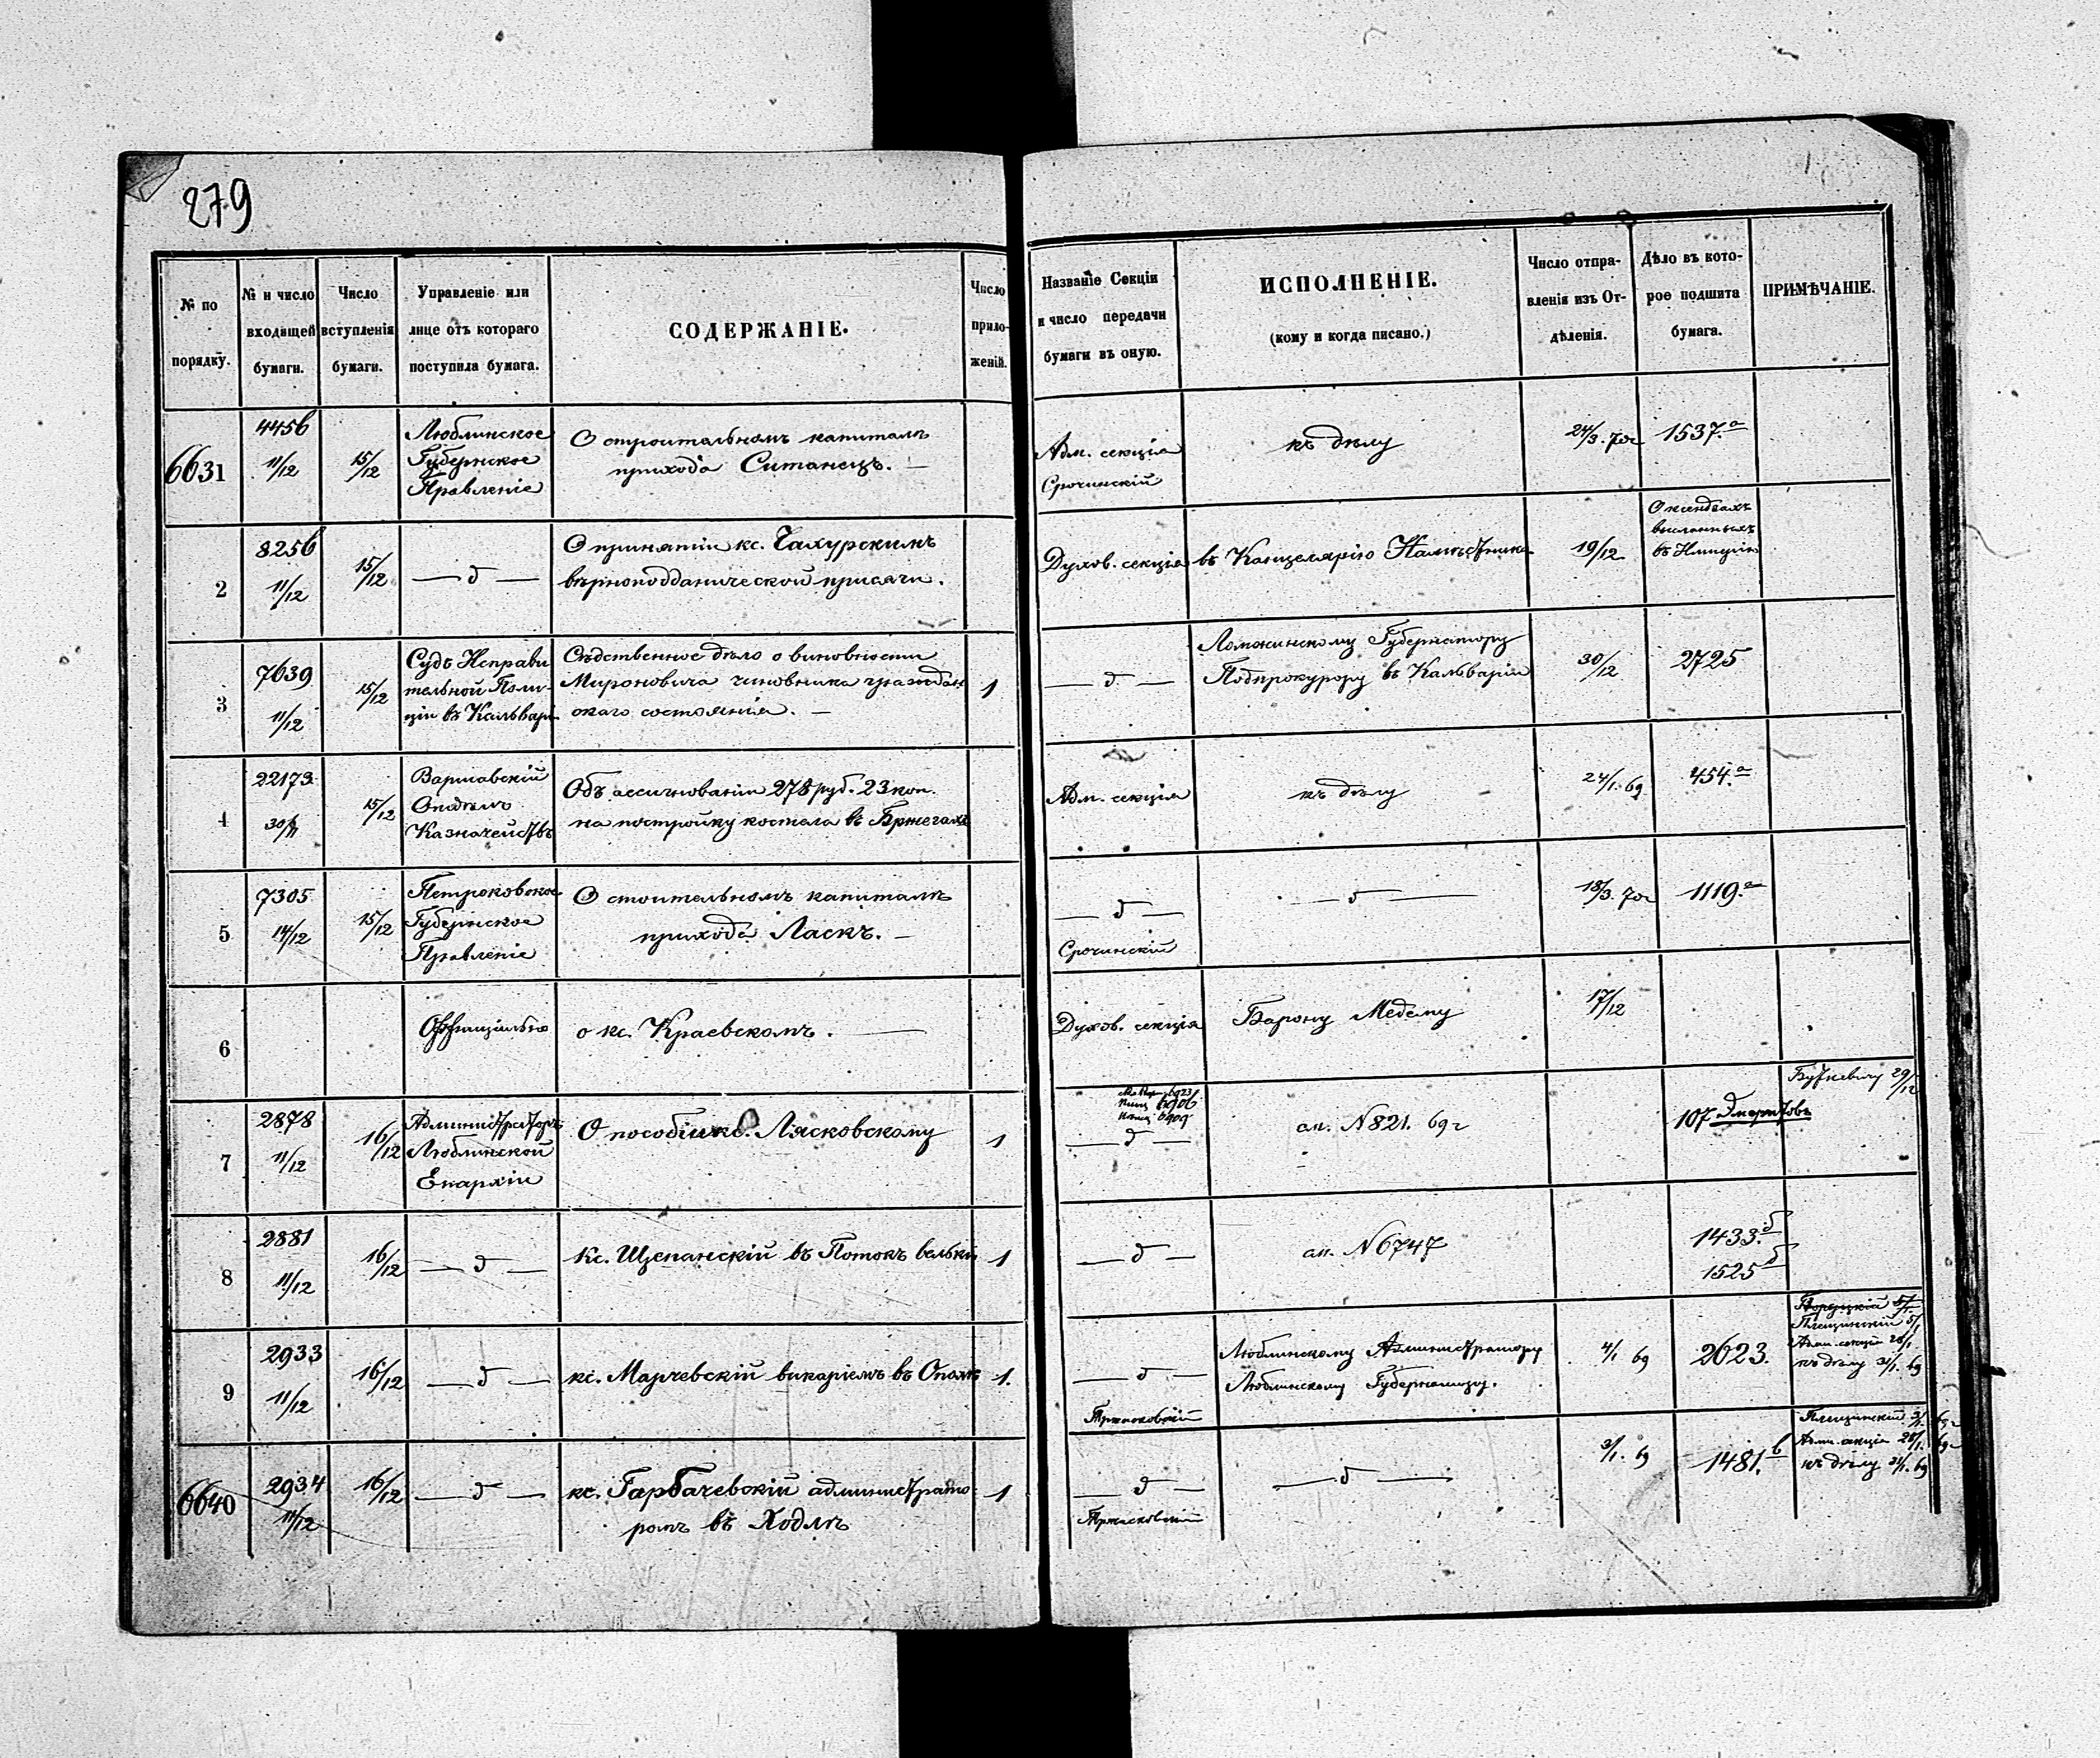 279
№ по
порядку.
№ и число
входящей
бумаги.
Число
вступленія
бумаги.
Управленіе или
лице отъ котораго
поступила бумага.
СОДЕРЖАНІЕ.
Число
прило-
женій.
Названіе Секціи
и число передачи
бумаги въ оную.
ИСПОЛНЕНІЕ.
(кому и когда писано.)
Число отпра-
вленія изъ От-
дѣленія.
Дѣло въ кото-
рое подшита
бумага.
ПРИМѢЧАНІЕ.
6631
4456
11/12
15/12
Люблинское
Губернское
Правленіе
О строительномъ капиталѣ
прихода Ситанецъ. —
Адм. секція
Срочинскій
къ дѣлу
24/3. 70г
1537.а
2
8256
11/12
15/12
— д —
О принятіи кс. Чахурскимъ
вѣрноподданической присяги.
Духов. секція
въ Канцелярію Намѣстника
19/12
О ксендзахъ
высланныхъ
въ Имперію
3
7639
11/12
15/12
Судъ Исправи
тельной Поли-
ціи въ Кальварі
Слѣдственное дѣло о виновности
Мироновича чиновника граждан
скаго состоянія. —
1
— д —
Ломжинскому Губернатору
Подпрокурору въ Кальваріи
30/12
2725
4
22173
30/11
15/12
Варшавскій
Отдѣлъ
Казначействъ
Объ ассигнованіи 278 руб. 23 коп.
на постройку костела въ Бржегахъ
Адм. секція
къ дѣлу
24/1. 69
454.а
5
7305
14/12
15/12
Петроковское
Губернское
Правленіе
О стоительномъ капиталѣ
прихода Ласкъ. —
— д —
Срочинскій
— д —
18/3. 70г
1119.а
6
Оффиціально
о кс. Краевскомъ. —
Духов. секція
Барону Медему
17/12
7
2878
11/12
16/12
Администраторъ
Люблинской
Епархіи
О пособіи кс. Лясковскому
1
6923
6906
6909
— д —
ап. N 821. 69г
107 Эмеритовъ
Буткевичу 29/12
8
2881
11/12
16/12
— д —
Кс. Щепанскій въ Потокъ велькій
1
— д —
ап. N 6747
1433.б
1525 б
9
2933
11/12
16/12
— д —
кс. Марчевскій викаріемъ въ Ополѣ
1.
— д —
Тржасковскій
Люблинскому Администратору
Люблинскому Губернатору.
4/1 69
2623.
Плещинскій 5/1
Адм. секція 28/1
къ дѣлу 31/1. 69
6640
2934
11/12
16/12
— д —
кс. Гарбачевскій администрато
ромъ въ Ходлѣ
1
— д —
Тржасковскій
— д —
3/1. 69
1481.в
Плещинскій 3/1. 69г
Адм. секція 28/1. 69г
къ дѣлу 31/1. 69